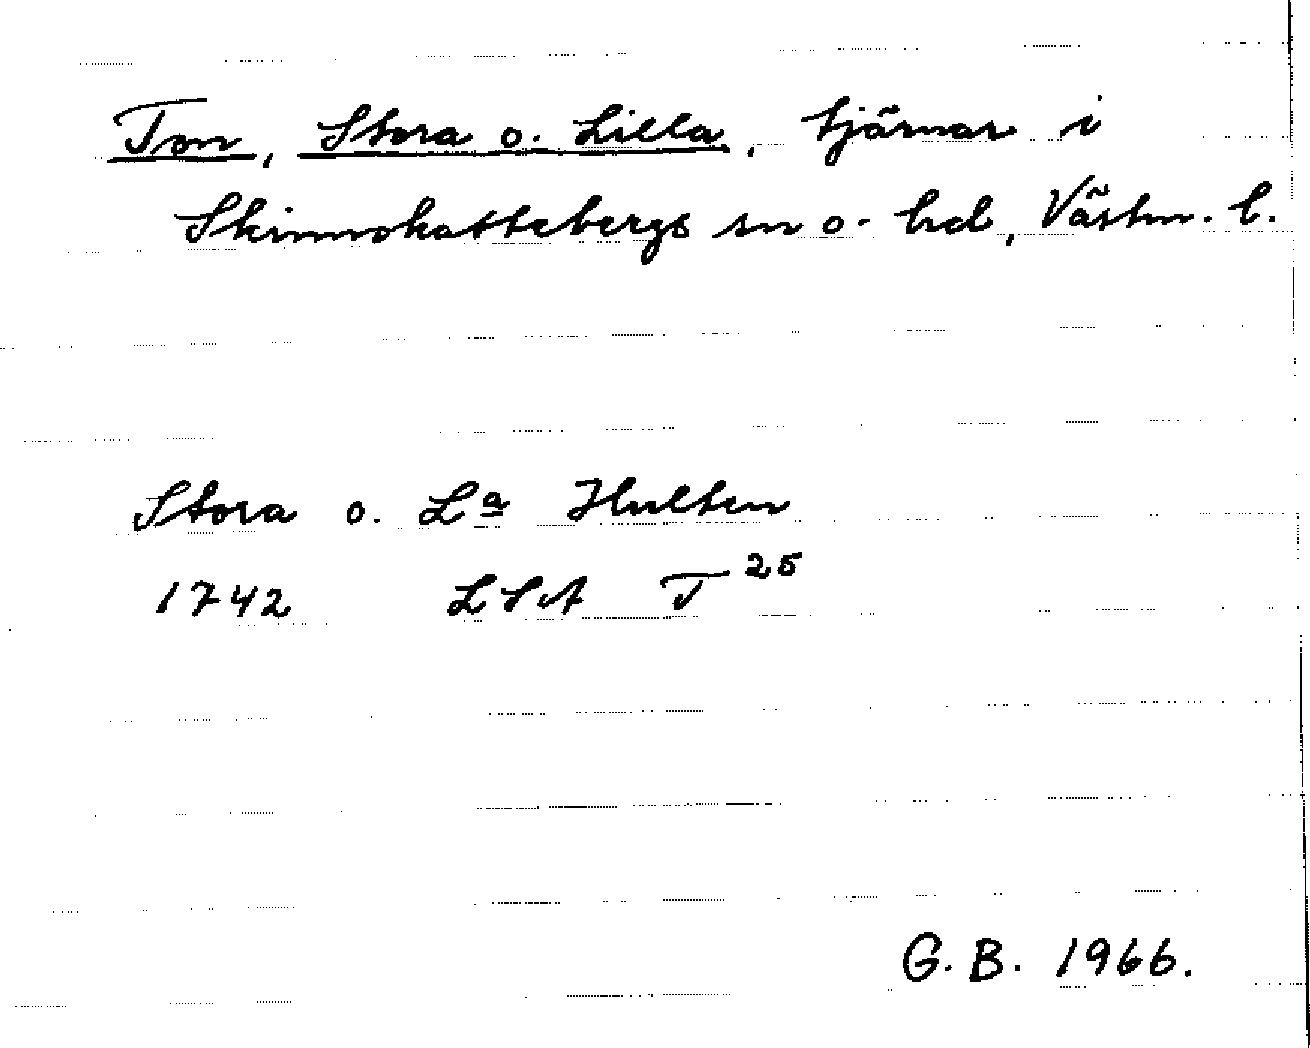 Ton, Stora o. Lilla, tjärnar i
Skinnskattebergs sn o. hd, Västm. l.
Stora o. La Hulten
1742 LSA T 25
G. B. 1966.